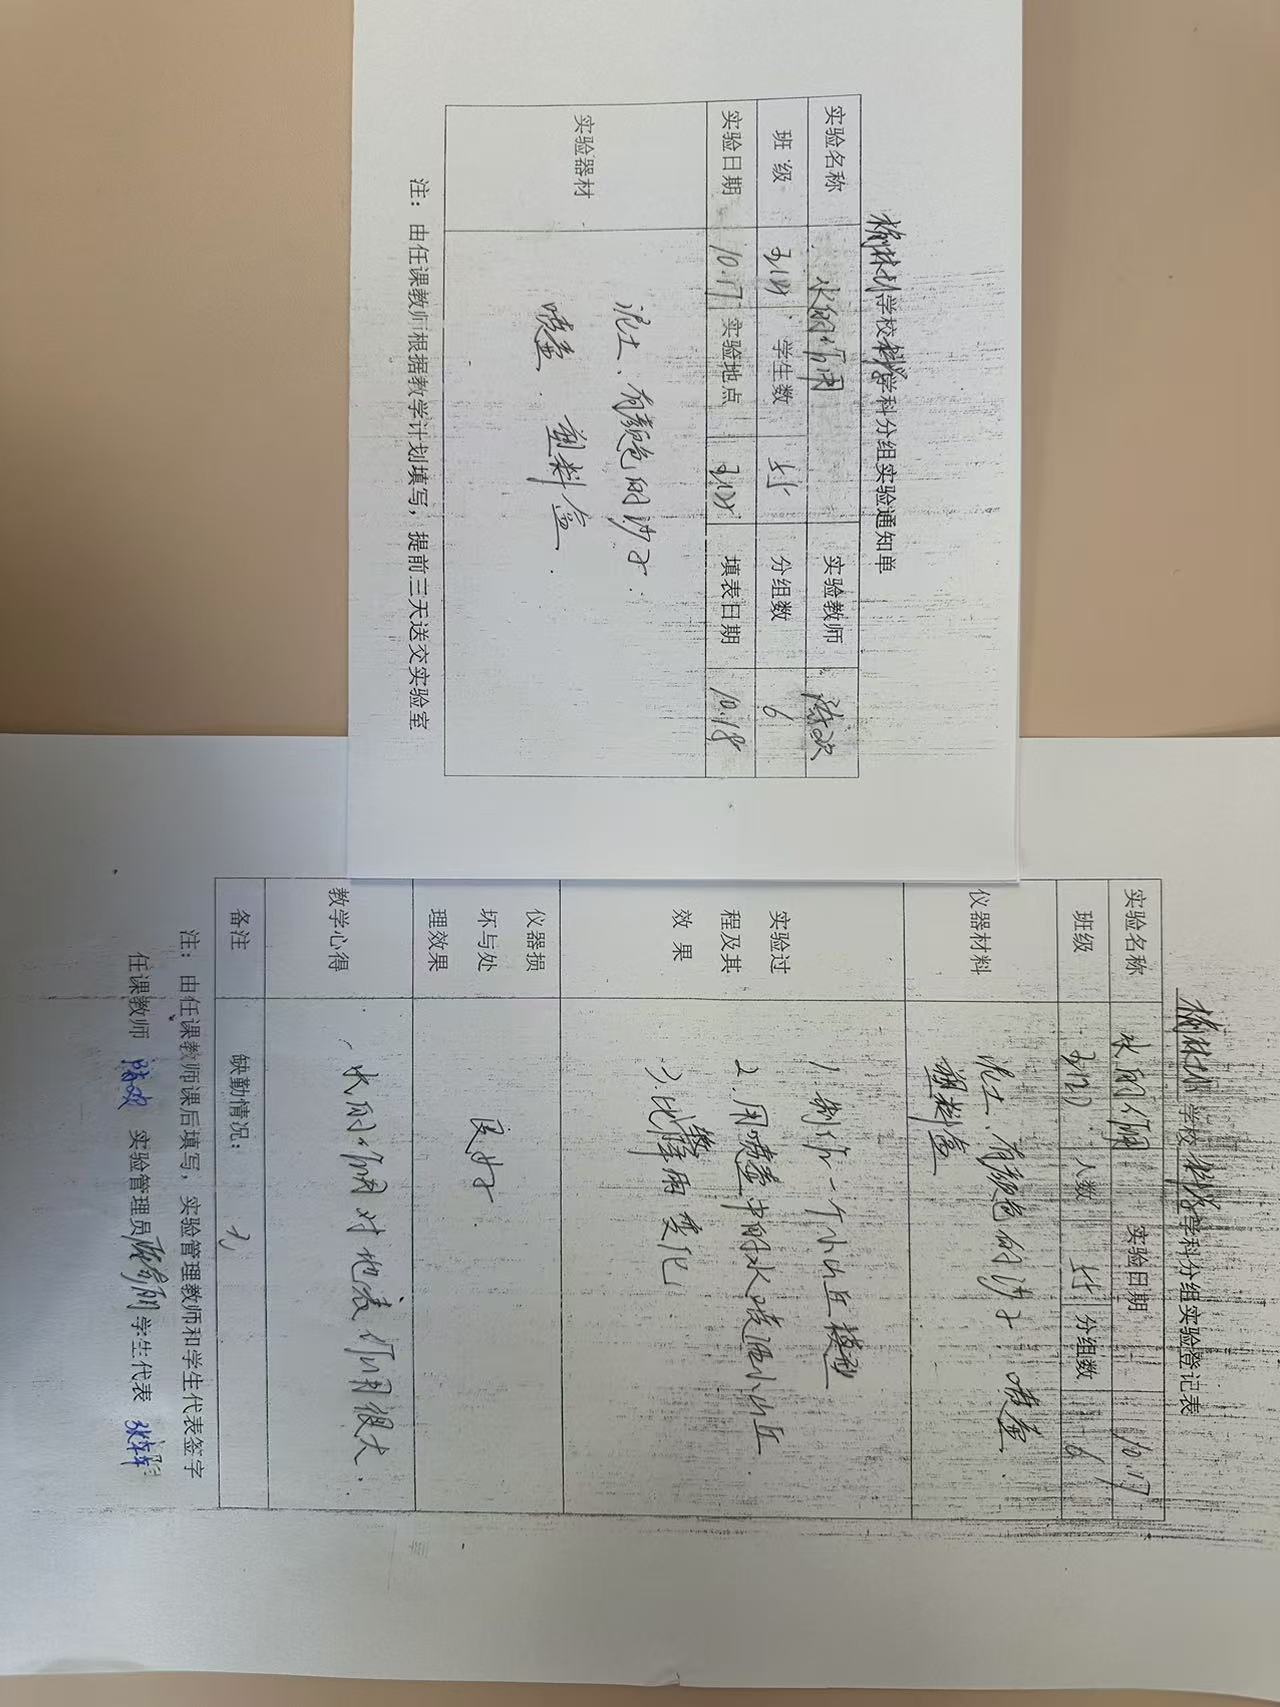 学校科学学科分组实验通知单
实验名称 水的作用 实验教师 陈欢
班级 学生数 分组数 6
实验日期 10.17 实验地点 填表日期 10.18
实验器材 泥土、有颜色的沙子.
喷壶. 塑料盒.
注：由任课教师根据教学计划填写，提前三天送交实验室
学校科学学科分组实验登记表
实验名称 水的作用 实验日期 10.17
班级 人数 分组数 6
仪器材料 泥土、有颜色的沙子 喷壶.
塑料盒
实验过程及其效果 1.制作一个小山丘模型
2.用喷壶中的水喷洒小山丘
3.比 降雨变化.
仪器损坏与处理效果 良好.
教学心得 水的作用对地表作用很大.
备注 缺勤情况：无
注：由任课教师课后填写，实验管理教师和学生代表签字
任课教师 陈欢 实验管理员 学生代表